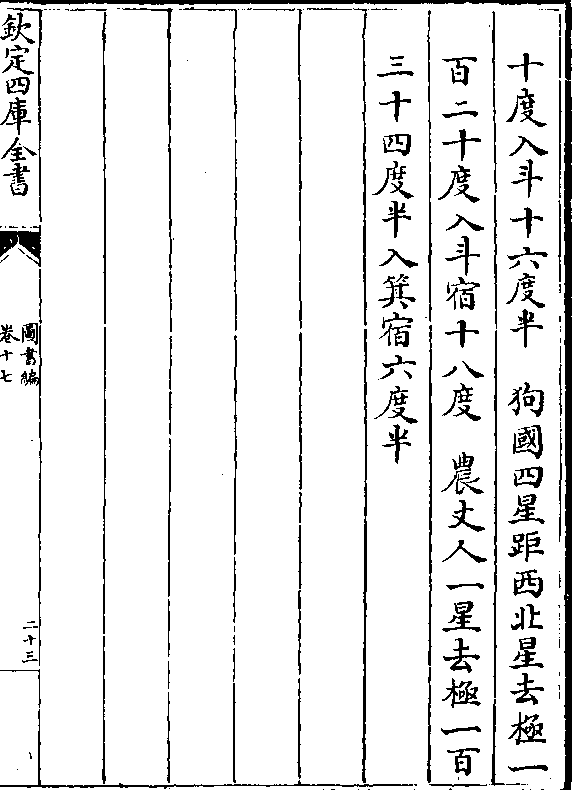 十度入斗十六度半　狗國四星距西北星去極一
百二十度入斗宿十八度　農丈人一星去極一百
三十四度半入箕宿六度半
欽定四庫全書
圖書編
卷十七
二十三